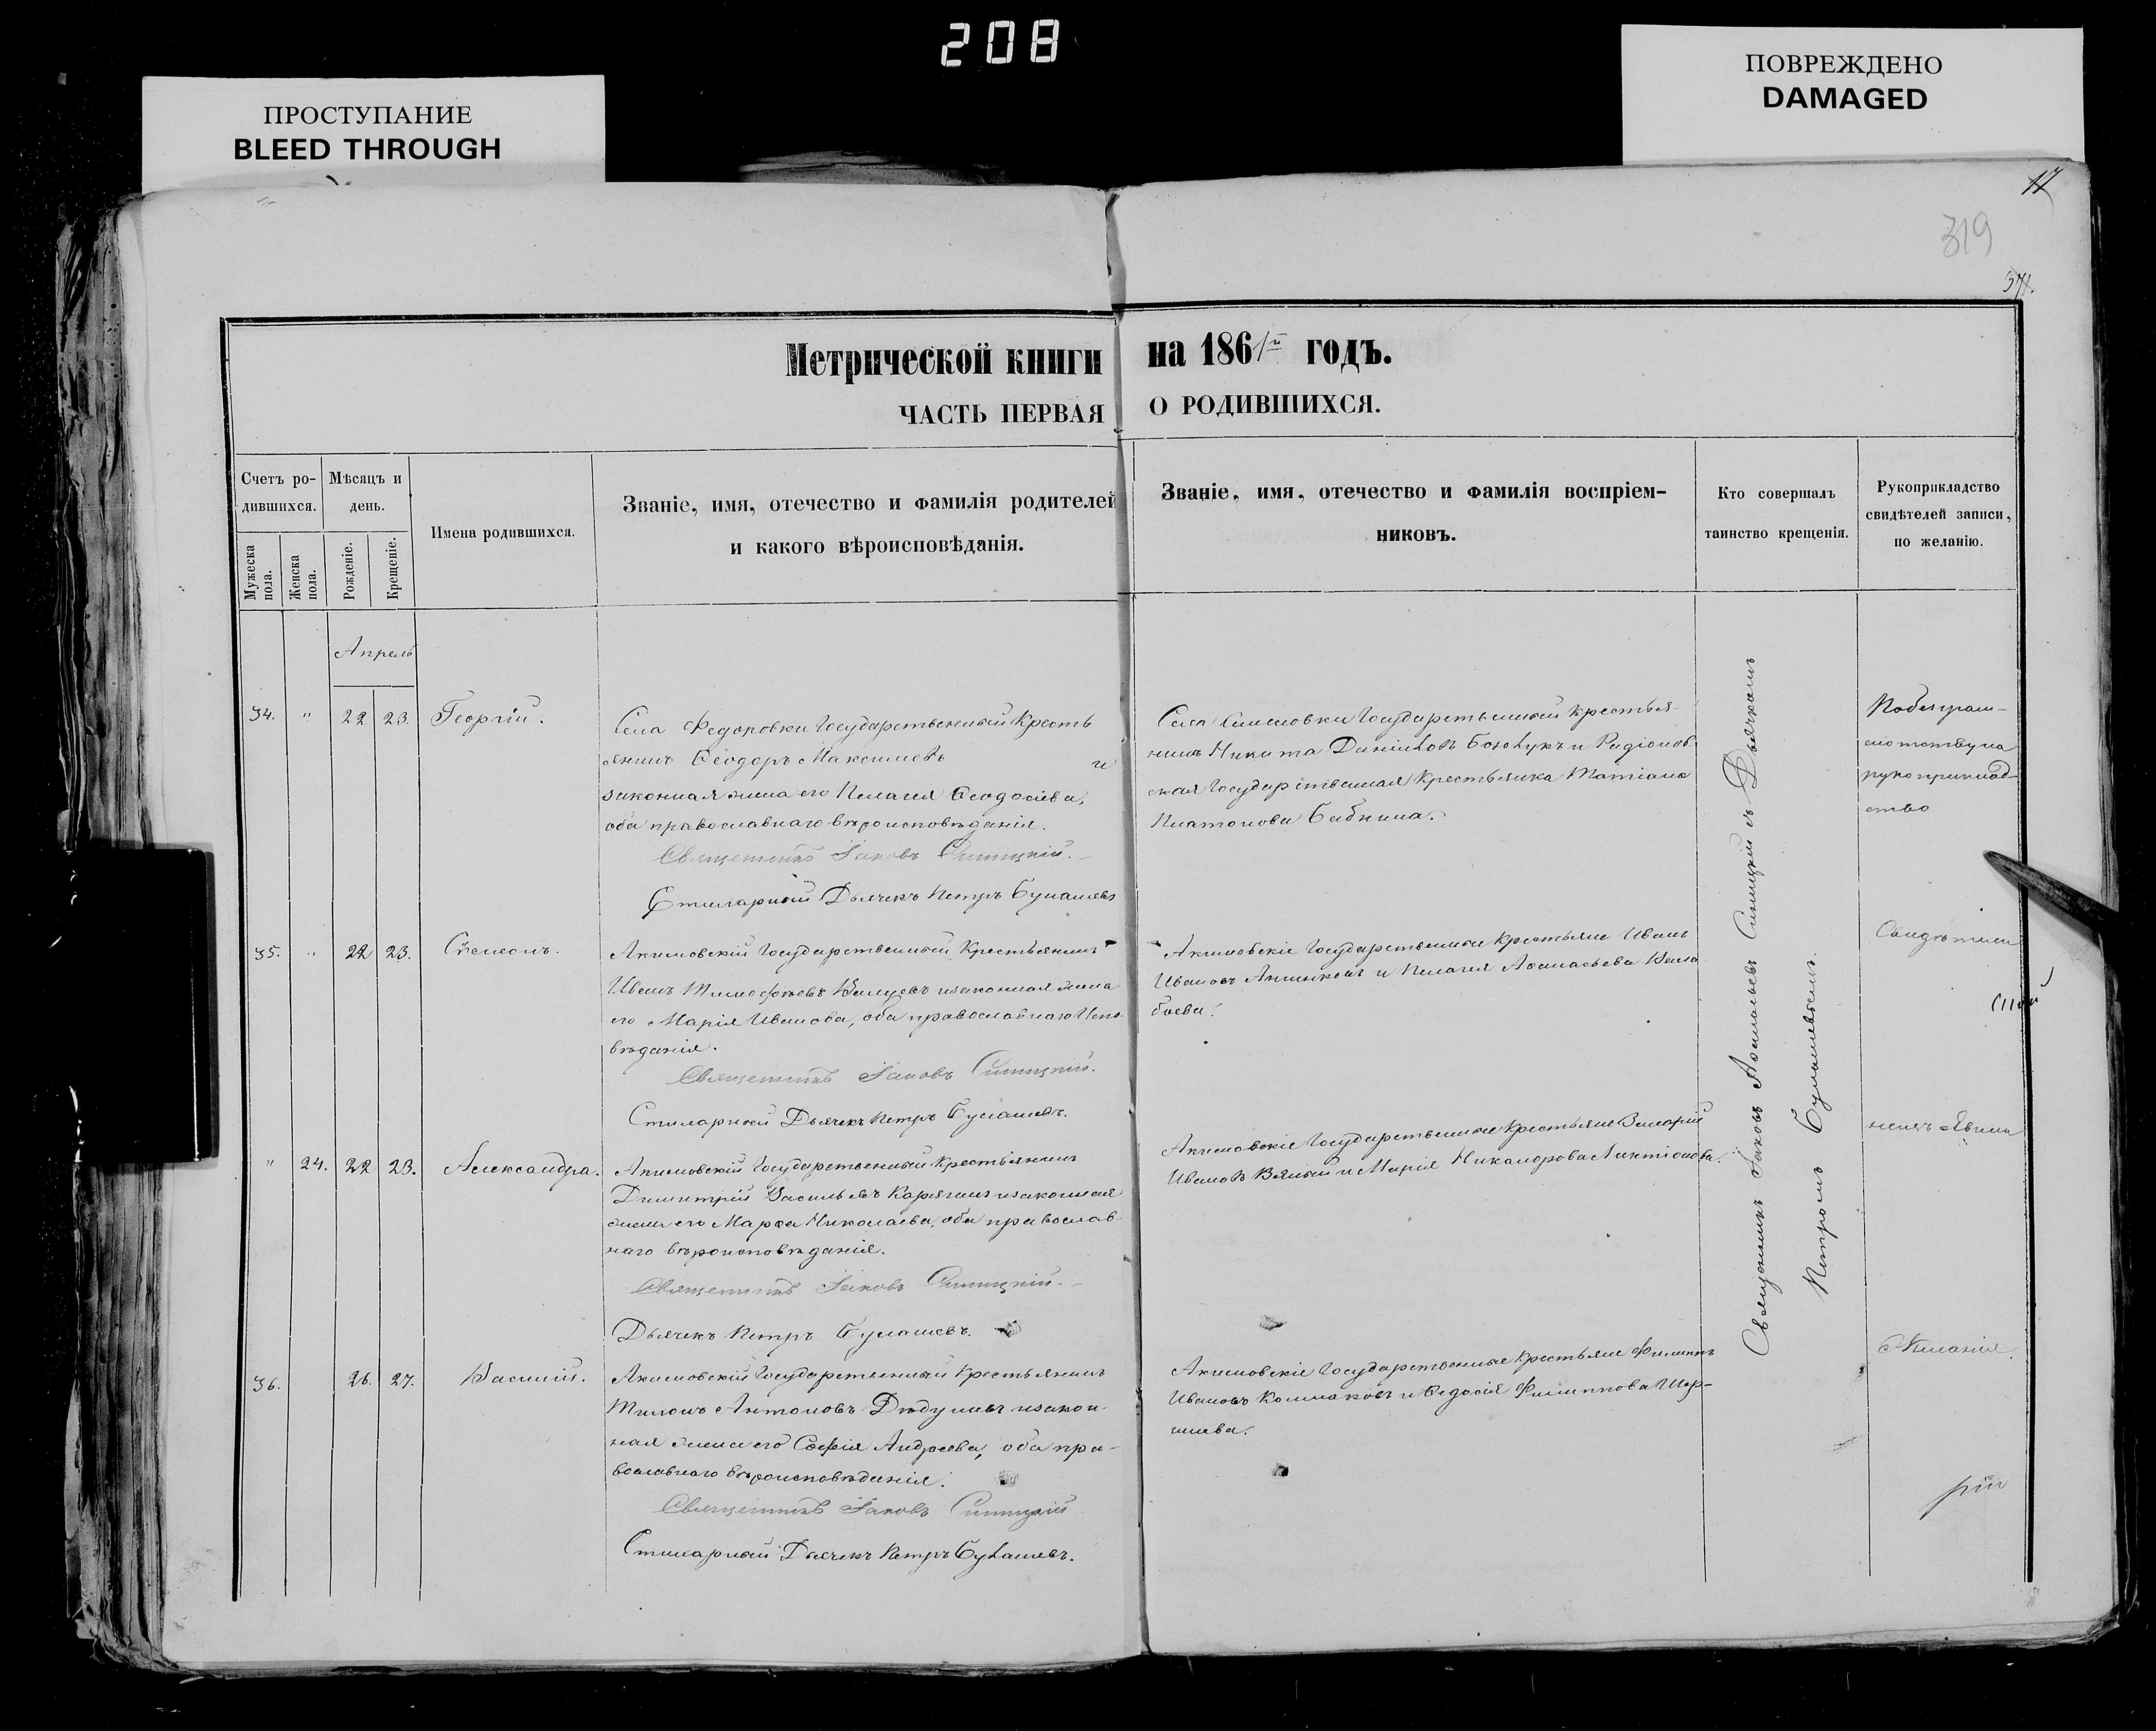 208
ПРОСТУПАНИЕ
BLEED THROUGH
ПОВРЕЖДЕНО
DAMAGED
17
319
Метрической книги на 1861й годъ.
ЧАСТЬ ПЕРВАЯ О РОДИВШИХСЯ.
Счетъ ро-
дившихся.
Мужеска
пола.
Женска
пола.
Мѣсяцъ и
день.
Рожденіе.
Крещеніе.
Имена родившихся.
Званіе, имя, отечество и фамилія родителей
и какого вѣроисповѣданія.
Званіе, имя, отечество и фамилія воспріем-
никовъ.
Кто совершалъ
таинство крещенія.
Рукоприкладство
свидѣтелей записи,
по желанію.
Апрель
34. " 22 23. Георгій.
Села Федоровки Государственный Кресть
янинъ Ѳеодоръ Максимовъ и
законная жена его Пелагея Ѳеодосіева,
оба православнаго вѣроисповѣданія.
Священникъ Іаковъ Синицкій.
Стихарный Дьячекъ Петръ Булашевъ
Государственный крестья-
нинъ Никита Даніиловъ и Радіонов
ская Государственная Крестьянка Татіана
Платонова Бабкина.
По безграм-
отству на
рукоприклад-
ство
35. " 22 23. Симеонъ.
Акимовскій Государственный Крестьянинъ
Иванъ Тимофѣевъ и законная жена
его Марія Иванова, оба православнаго Испо
вѣданія.
Священникъ Іаковъ Синицкій.
Стихарный Дьячекъ Петръ Булашевъ.
Акимовскіе Государственные Крестьяне Иванъ
Ивановъ и Пелагея Аѳанасьева
Свидѣтели
" 24. 22 23. Александра.
Акимовскій Государственный Крестьянинъ
Димитрій Васильевъ Карягинъ и законная
жена его Марѳа Николаева, оба православ-
наго вѣроисповѣданія.
Священникъ Іаковъ Синицкій.
Дьячекъ Петръ Булашевъ.
Акимовскіе Государственные Крестьяне
Ивановъ и Марія Никанорова
36. 26. 27. Василій.
Акимовскій Государственный Крестьянинъ
Антоновъ и закон-
ная жена его Софія Андреева, оба пра-
вославнаго вѣроисповѣданія.
Священникъ Іаковъ Синицкій
Стихарный Дьячекъ Петръ Булашевъ.
Акимовскіе Государственные Крестьяне Филиппъ
Ивановъ Колмаковъ и Ѳедосія Филиппова
Желанія
Священникъ Іаковъ Синицкій съ Дьячкомъ
Петромъ Булашевымъ.